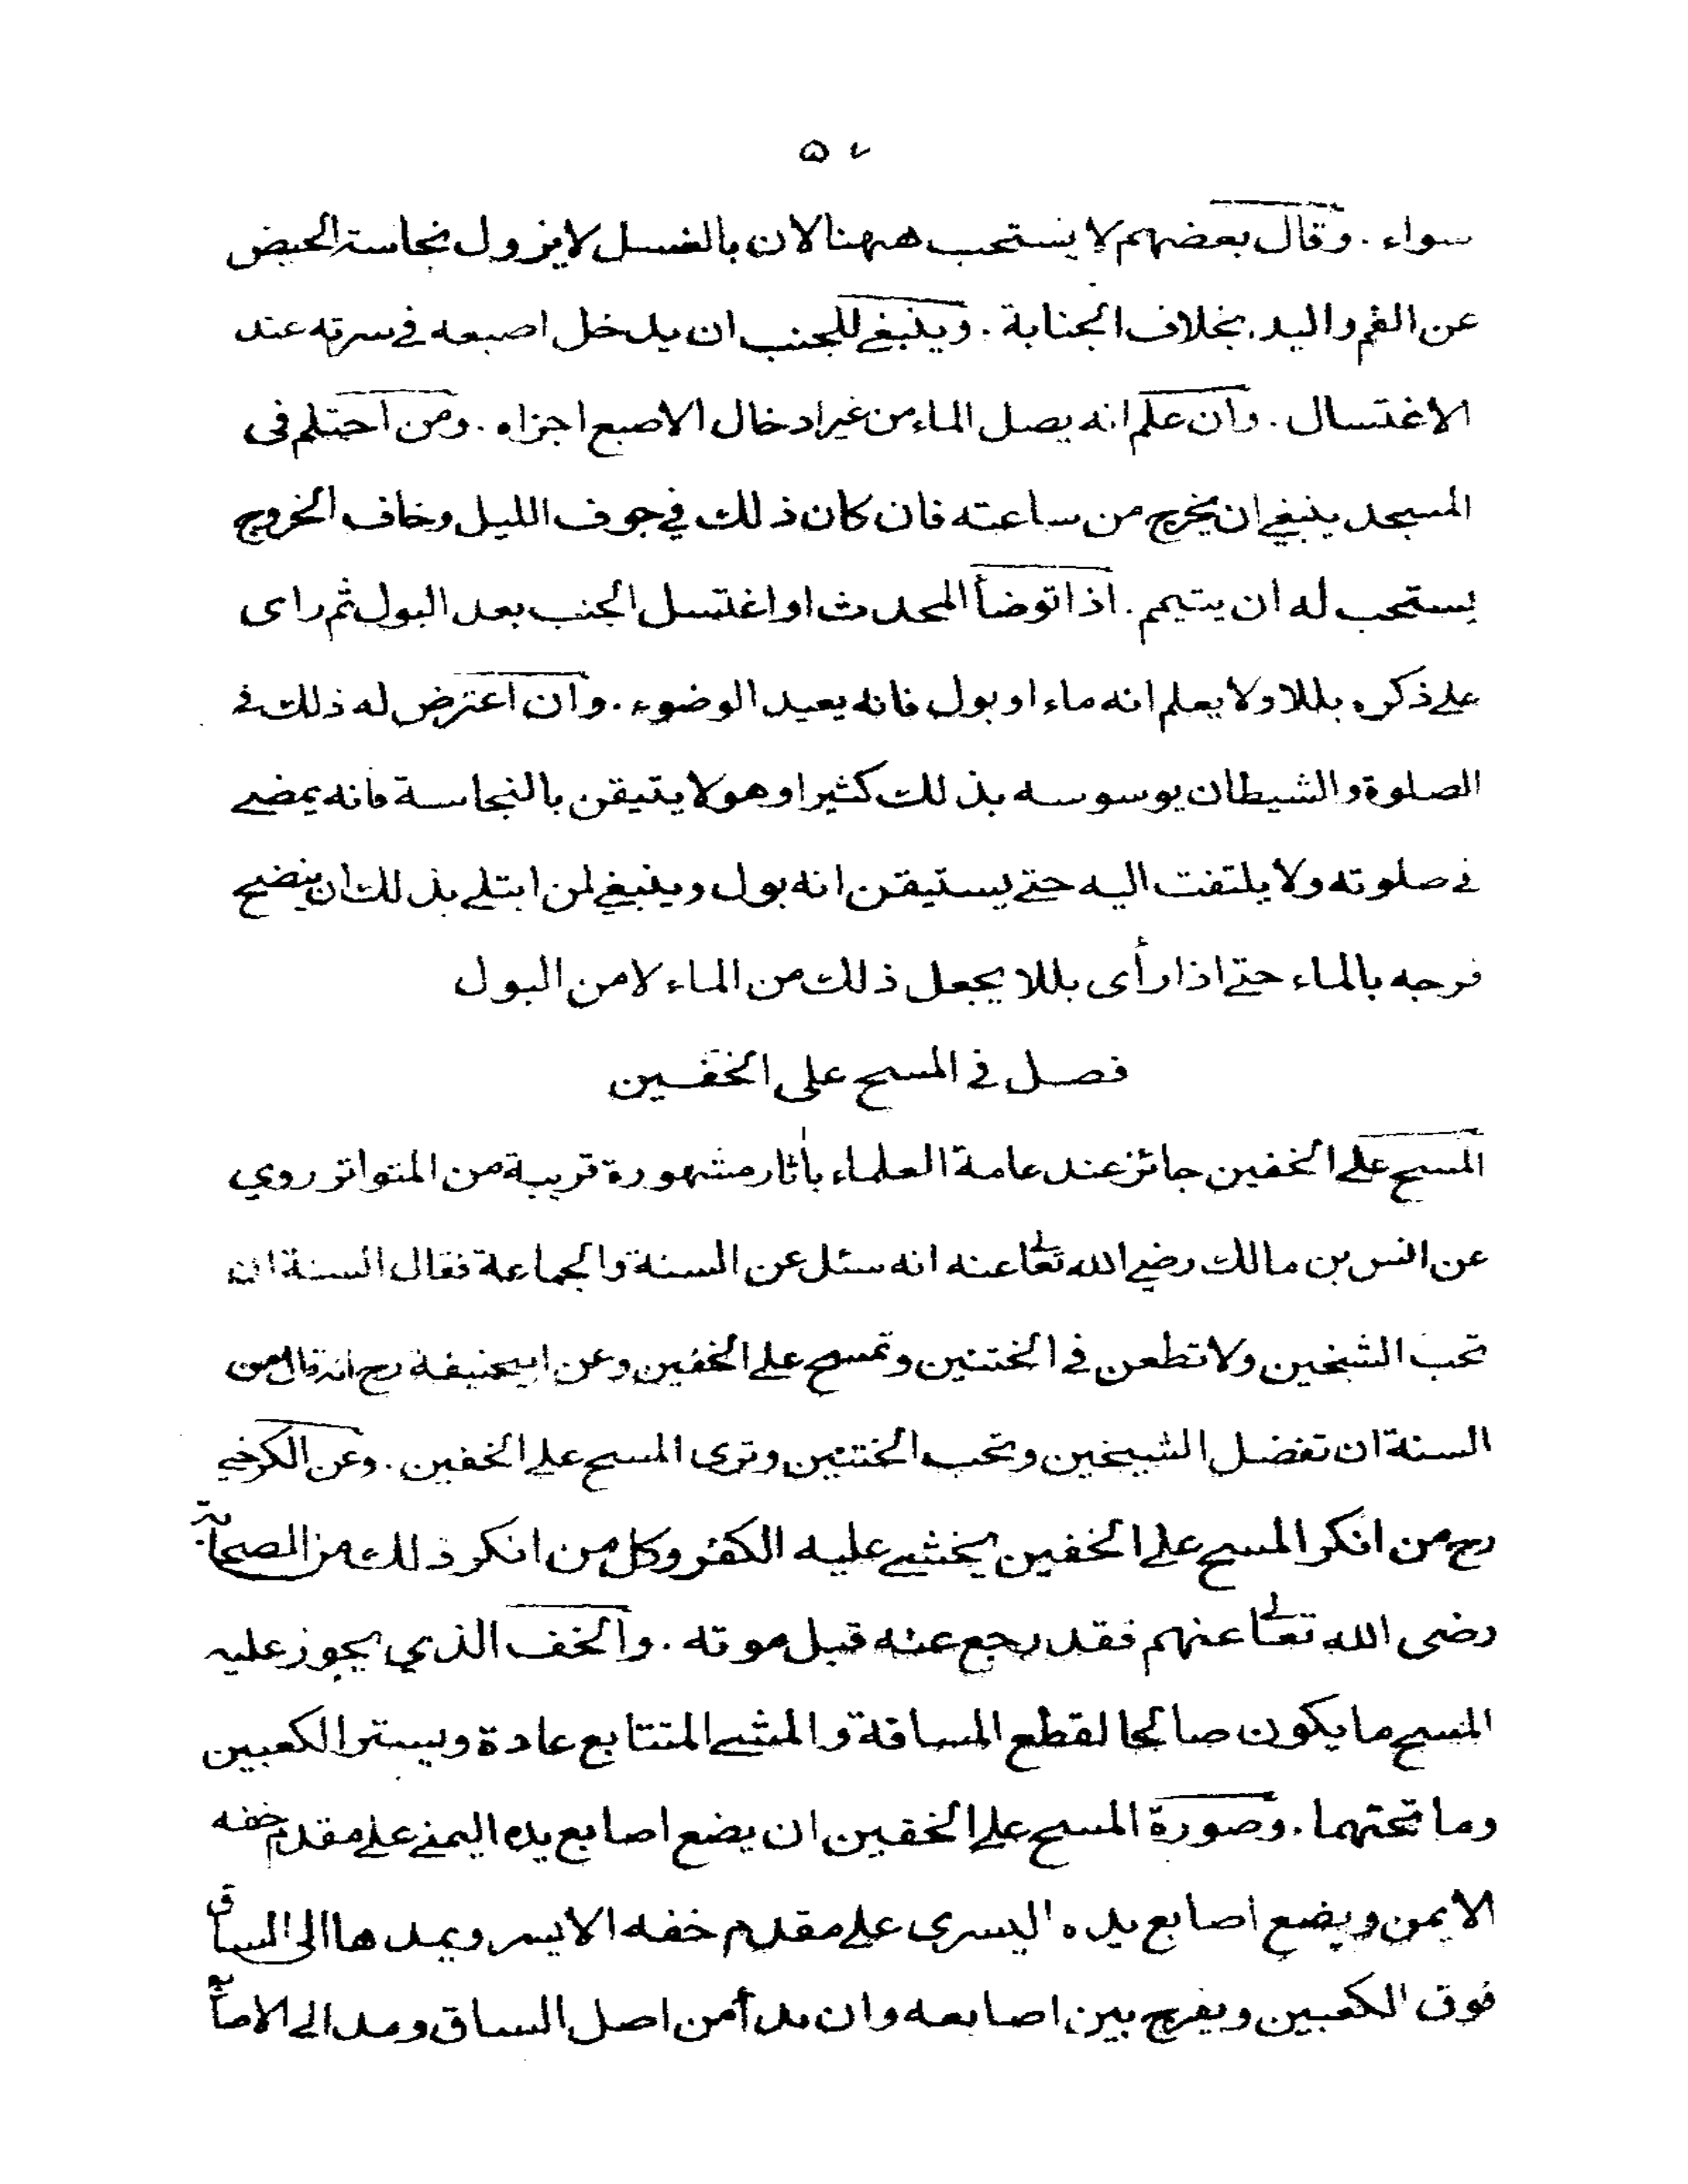 ٥٧
سواء . وقال بعضهم لا يستحب ههنا لان بالغسل لا يزول نجاسة الحيض
عن الفم واليد بخلاف الجنابة . وينبغي للجنب ان يدخل اصبعه في سرته عند
الاغتسال . وان علم انه يصل الماء من غير ادخال الاصبع اجزاه . ومن احتلم فى
المسجد ينبغي ان يخرج من ساعته فان كان ذلك في جوف الليل وخاف الخروج
يستحب له ان يتيمم . اذا توضأ المحدث او اغتسل الجنب بعد البول ثم راى
على ذكره بللا ولا يعلم انه ماء او بول فانه يعيد الوضوء . وان اعترض له ذلك في
الصلوة والشيطان يوسوسه بذلك كثيرا وهو لا يتيقن بالنجاسة فانه يمضي
في صلوته ولا يلتفت اليه حتى يستيقن انه بول وينبغي لمن ابتلي بذلك ان ينضح
فرجه بالماء حتى اذا رأى بللا يجعل ذلك من الماء لا من البول
فصل في المسح على الخفين
المسح على الخفين جائز عند عامة العلماء بأثار مشهورة قريبة من المتواتر روي
عن انس بن مالك رضي الله تعالى عنه انه سئل عن السنة والجماعة فقال السنة ان
تحب الشيخين ولا تطعن في الختنين وتمسح على الخفين وعن ابيحنيفة رح انه قال من
السنة ان تفضل الشيخين وتحب الختنين وترى المسح على الخفين . وعن الكرخي
رح من انكر المسح على الخفين يخشى عليه الكفر وكل من انكر ذلك من الصحابة
رضى الله تعالى عنهم فقد رجع عنه قبل موته . والخف الذي يجوز عليه
المسح ما يكون صالحا لقطع المسافة والمشي المتتابع عادة ويستر الكعبين
وما تحتهما . وصورة المسح على الخفين ان يضع اصابع يده اليمنى على مقدم خفه
الايمن ويضع اصابع يده اليسرى على مقدم خفه الايسر ويمدها الى الساق
فوق الكعبين ويفرج بين اصابعه وان بدأ من اصل الساق ومد الى الاصابع